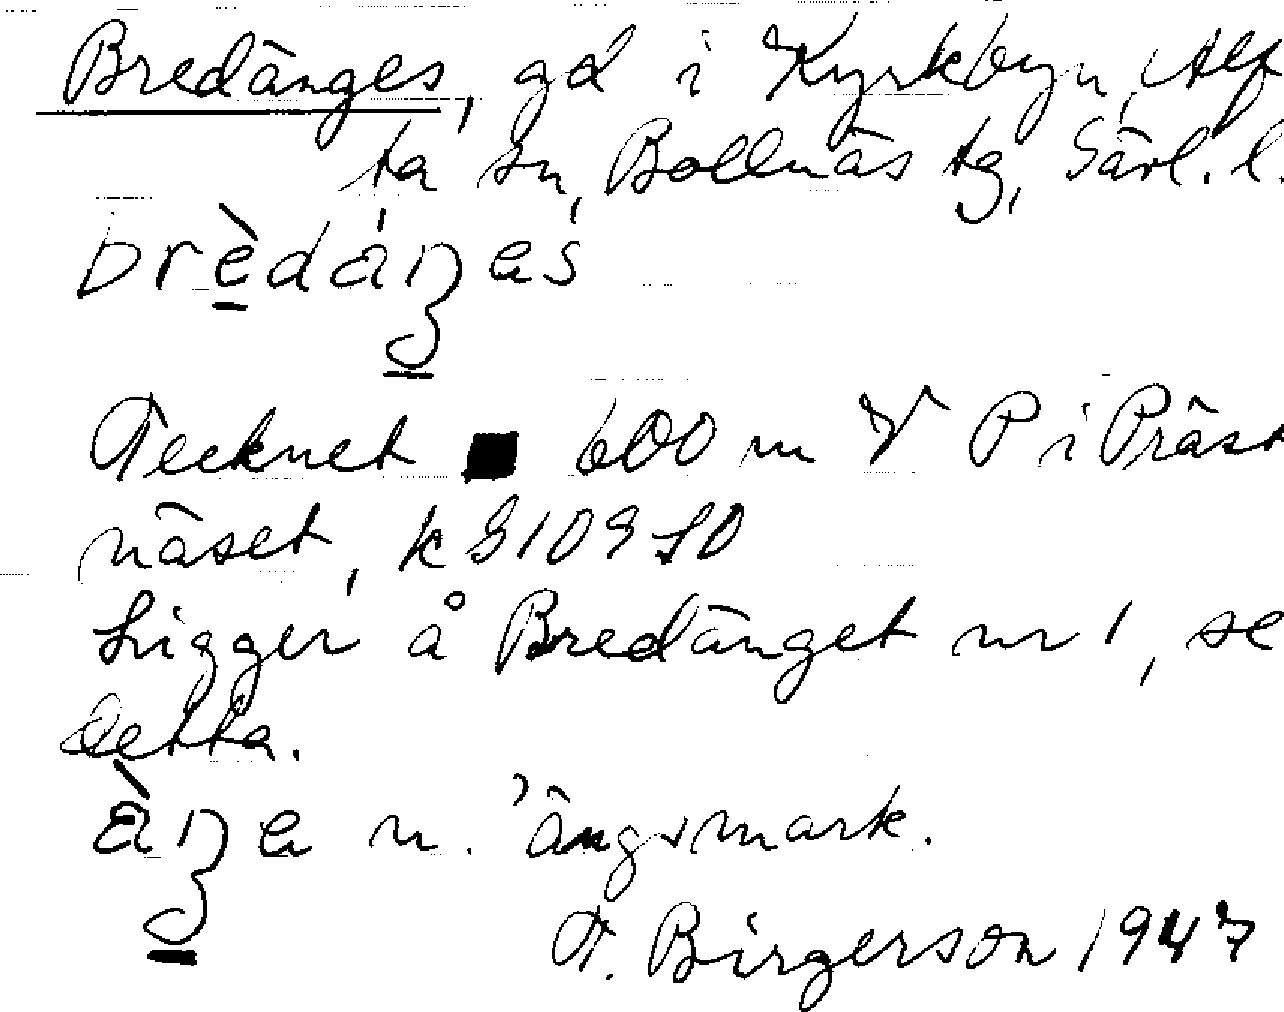 Bredänges, gd i Kyrkbyn, Alf
ta sn, Bollnäs tg, Gävl. l.
brèdáŋes
Tecknet ■ 600 m V P i Präst
näset, k 9109 SO
Ligger å Bredänget nr 1, se
detta.
àŋe n. 'ängsmark.
F. Birgerson 1947